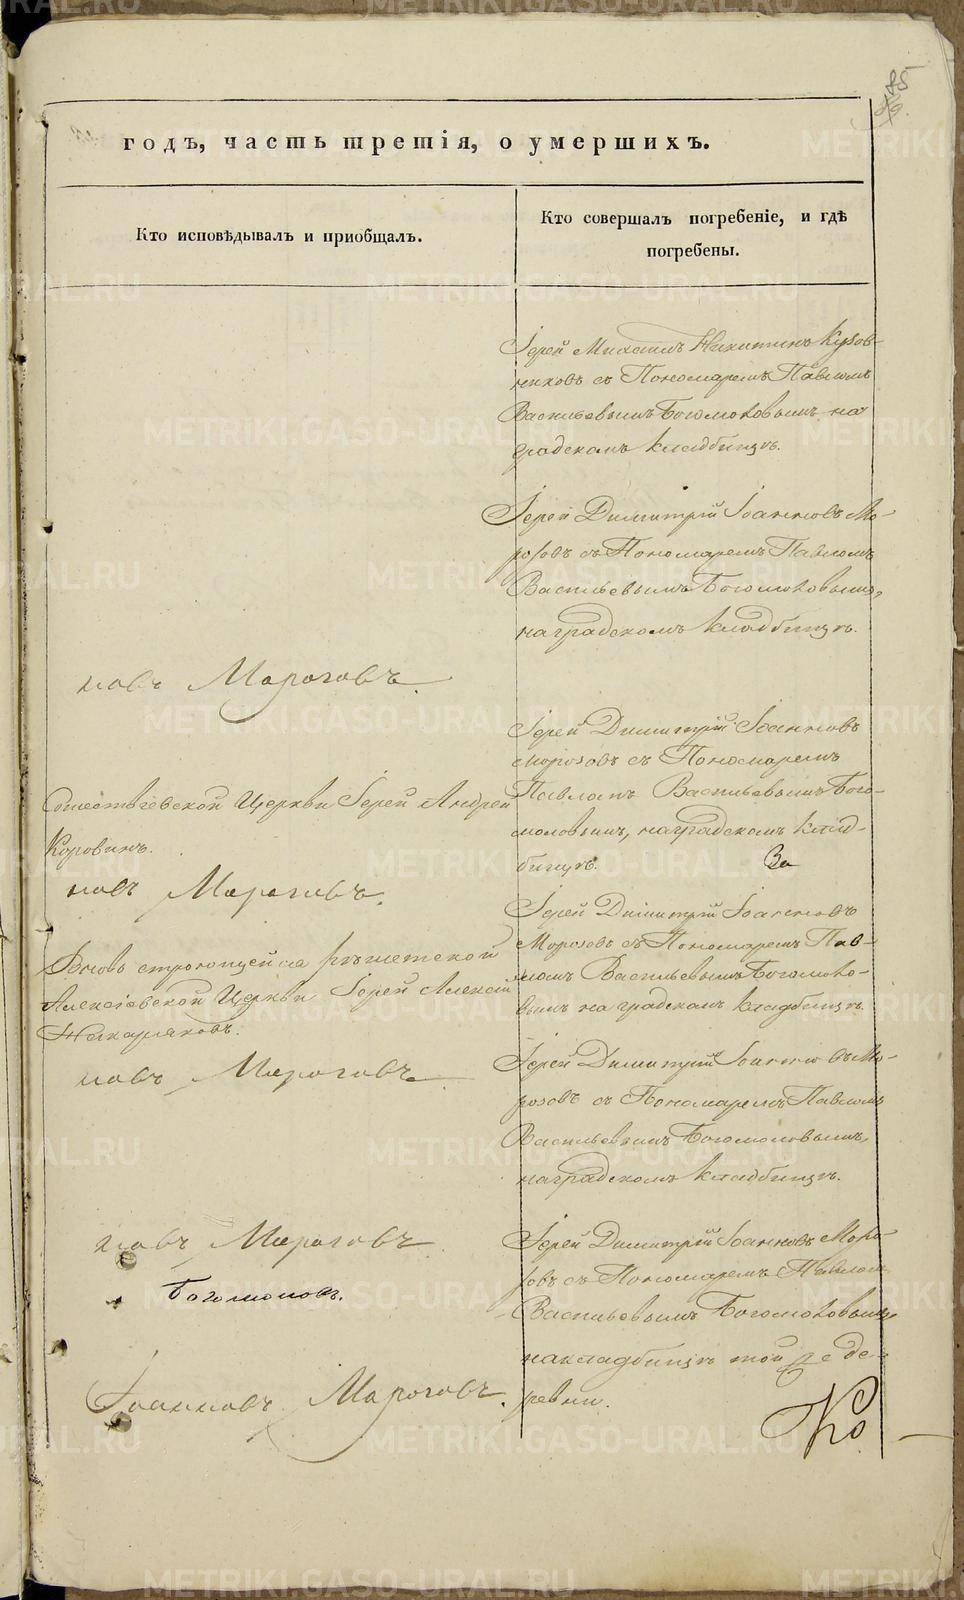 годъ, часть третія, о умершихъ.
Кто исповѣдывалъ и приобщалъ.
Кто совершалъ погребеніе, и гдѣ
погребены.
Іерей Михаилъ Никитинъ Кузов-
никовъ съ Пономаремъ Павломъ
Васильевымъ Богомоловымъ на
градскомъ кладбищѣ.
Іерей Димитрій Іоанновъ Мо-
розовъ съ Пономаремъ Павломъ
Васильевымъ Богомоловымъ,
на градскомъ кладбищѣ.
новъ Морозовъ.
Іерей Димитрій Іоанновъ
Морозовъ съ Пономаремъ
Павломъ Васильевымъ Бого-
моловымъ, на градскомъ клад-
бищѣ.
За
Сошествіевской Церкви Іерей Андрей
Коровинъ.
новъ Морозовъ.
Іерей Димитрій Іоанновъ
Морозовъ съ Пономаремъ Пав-
ломъ Васильевымъ Богомоло-
вымъ на градскомъ кладбищѣ.
Вновь строющейся
Алексіевской Церкви Іерей Алексій
новъ Морозовъ
Іерей Димитрій Іоанновъ Мо-
розовъ съ Пономаремъ Павломъ
Васильевымъ Богомоловымъ,
на градскомъ кладбищѣ.
новъ Морозовъ
Богомоловъ.
Іоанновъ Морозовъ.
Іерей Димитрій Іоанновъ Моро-
зовъ съ Пономаремъ Павломъ
Васильевымъ Богомоловымъ,
на кладбищѣ той же де-
ревни.
Ко
METRIKI.GASO-URAL.RU